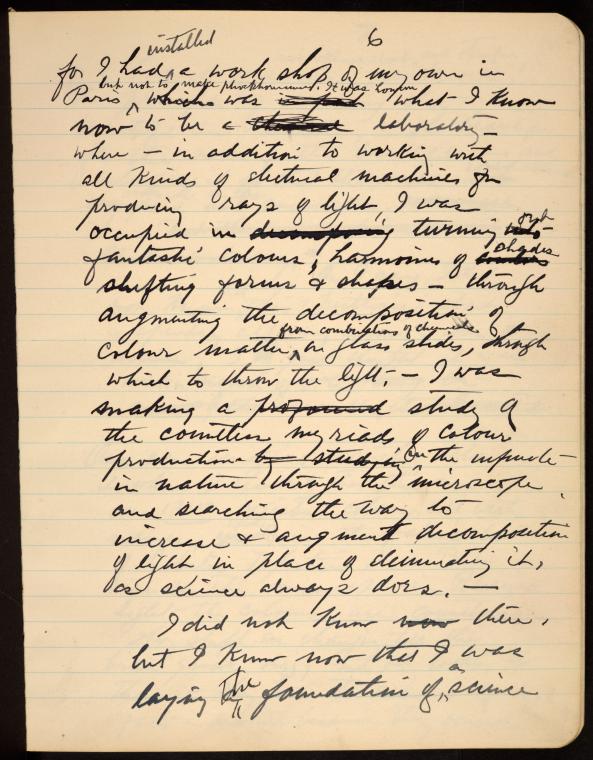 6
installed
for I had ^ a work shop of my own in
but not to make phosphorescence. It was
Paris ^ which was in fact what I know
now to be a chemical laboratory –
where – in addition to working with
all kinds of electrical machines for
producing rays of light I was
occupied in decomposing turning out
fantastic colours, harmonies of shades
shifting forms & shapes – through
augmenting the decomposition of
from combinations of chemicals
colour matter ^ on glass slides, through
which to throw the light, – I was
making a profound study of
the countless myriads of colour
productions by studying on the infinite
in nature through the microscope,
and searching the way to
increase & augment decomposition
of light in place of eliminating it,
as science always does. –
I did not know now there,
but I know now that I was
laying the foundation of ^ a science